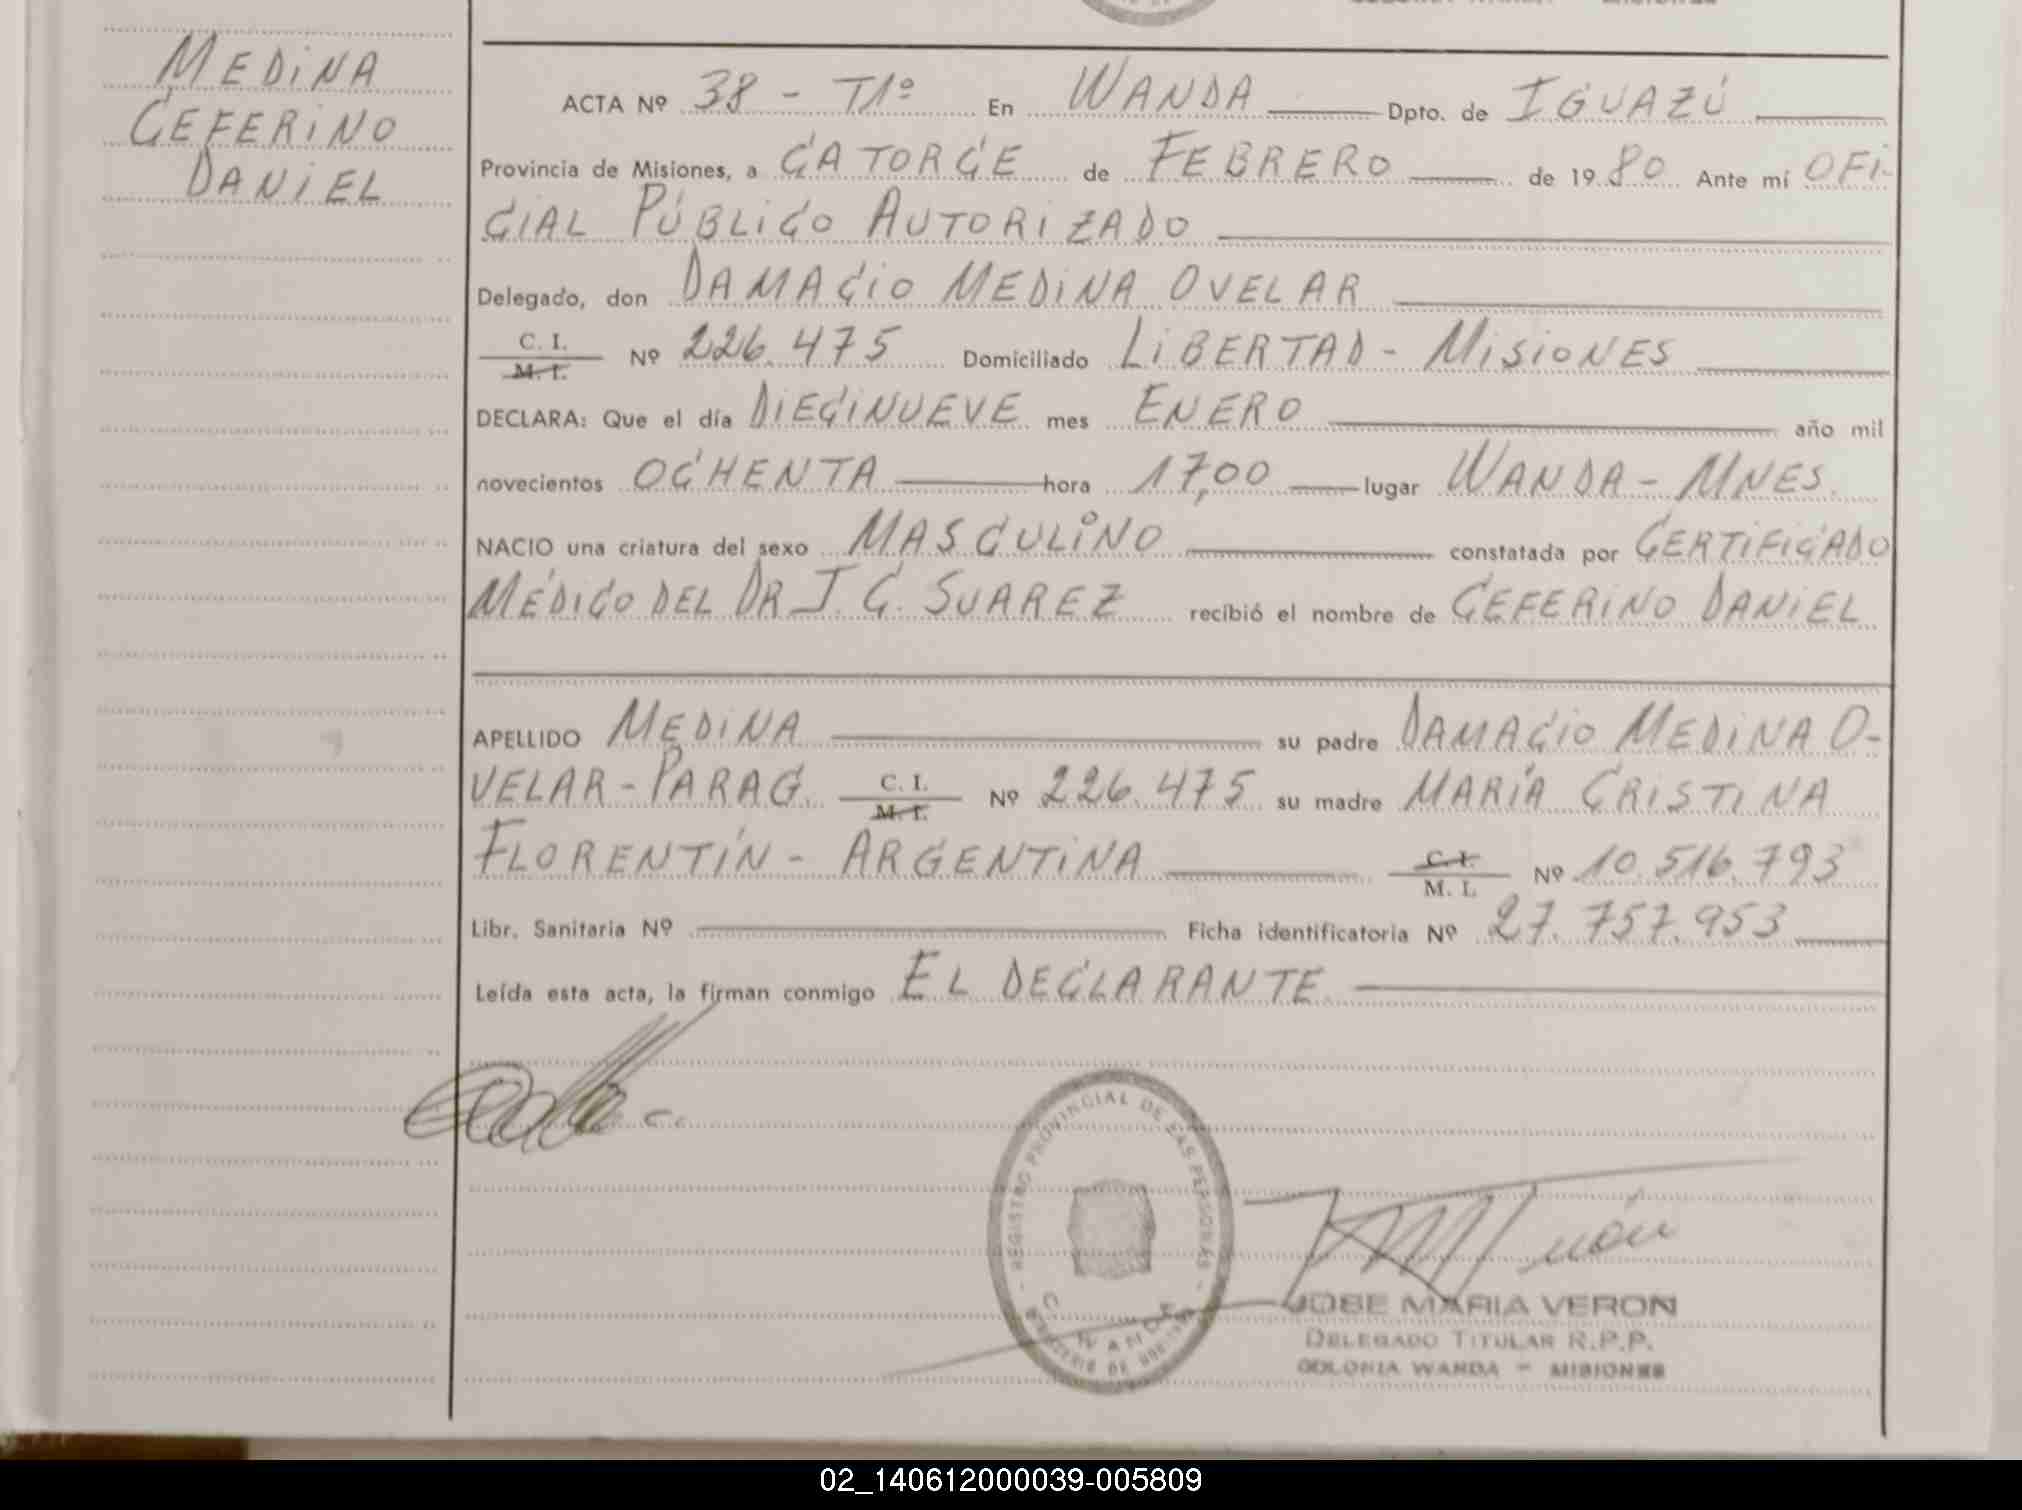 MEDINA
CEFERINO
DANIEL
ACTA Nº 38 - T1º En WANDA Dpto. de IGUAZÚ
Provincia de Misiones, a CATORCE de FEBRERO de 1980 Ante mí OFI-
CIAL PÚBLICO AUTORIZADO
Delegado, don DAMACIO MEDINA OVELAR
C. I.
M. I. Nº 226.475 Domiciliado LIBERTAD - MISIONES
DECLARA: Que el día DIECINUEVE mes ENERO año mil
novecientos OCHENTA hora 17,00 lugar WANDA - MNES.
NACIO una criatura del sexo MASCULINO constatada por CERTIFICADO
MÉDICO DEL DR J. C. SUAREZ recibió el nombre de CEFERINO DANIEL
APELLIDO MEDINA su padre DAMACIO MEDINA O-
VELAR - PARAG. C. I. M. I. Nº 226.475 su madre MARÍA CRISTINA
FLORENTÍN - ARGENTINA C. I. M. I. Nº 10.516.793
Libr. Sanitaria Nº Ficha identificatoria Nº 27.757.953
Leída esta acta, la firman conmigo EL DECLARANTE
REGISTRO PROVINCIAL DE LAS PERSONAS
JOSE MARIA VERON
DELEGADO TITULAR R.P.P.
COLONIA WANDA - MISIONES
02_140612000039-005809